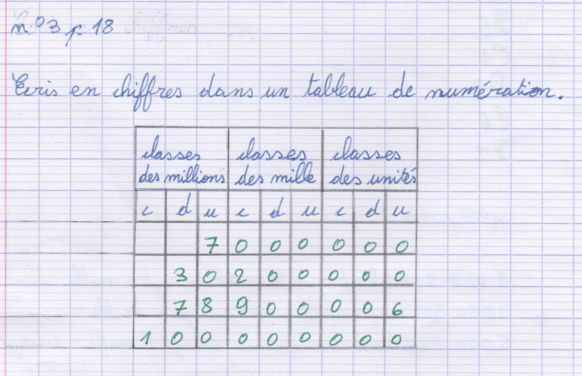 n°3 p 18
Ecris en chiffres dans un tableau de numération.
classes des millions classes des mille classes des unités
c d u c d u c d u
7 0 0 0 0 0 0
3 0 2 0 0 0 0 0
7 8 9 0 0 0 0 6
1 0 0 0 0 0 0 0 0